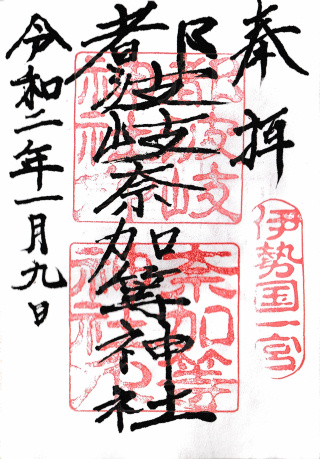 奉拝
伊勢国一宮
都波岐奈加等神社
都波岐
神社
奈加等
神社
令和二年一月九日